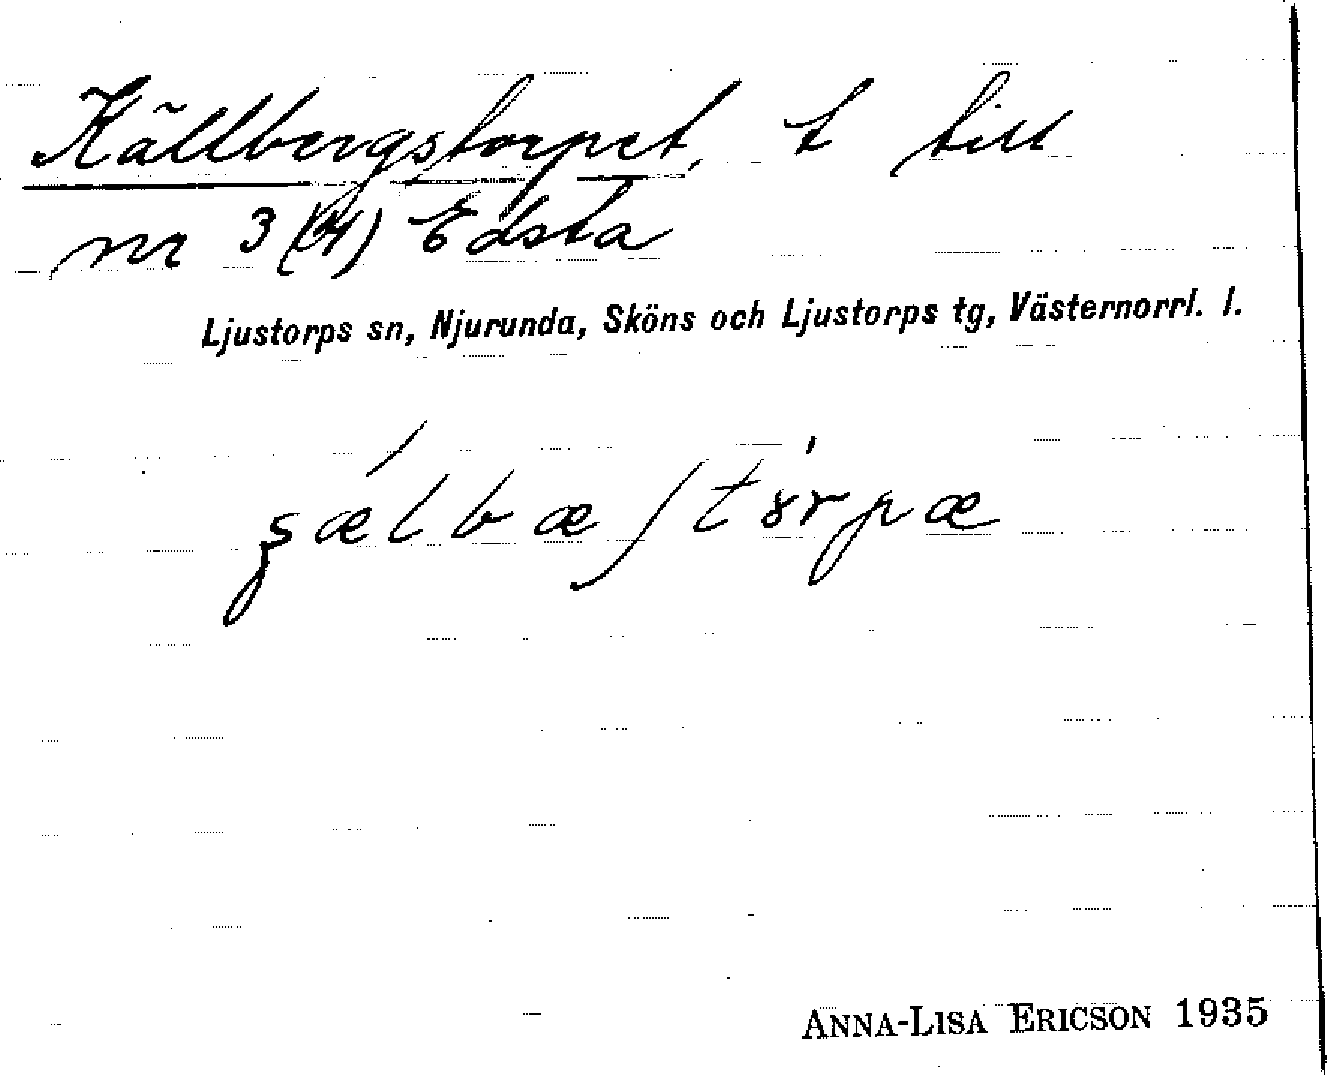 Källbergstorpet, t till
nr 3 (4) Edsta
Ljustorps sn, Njurunda, Sköns och Ljustorps tg, Västernorrl. l.
ʂælbæʃtɤrpæ
ANNA-LISA ERICSON 1935